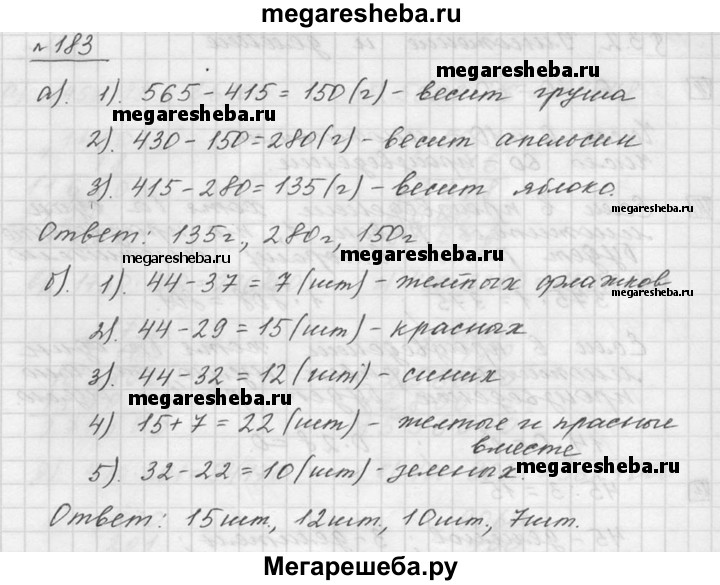 megaresheba.ru
№ 183
а). 1). 565 - 415 = 150 (г) - весит груша
megaresheba.ru
megaresheba.ru
2). 430 - 150 = 280 (г) - весит апельсин
3). 415 - 280 = 135 (г) - весит яблоко.
megaresheba.ru
Ответ: 135г., 280г, 150г
megaresheba.ru
megaresheba.ru
б). 1). 44 - 37 = 7 (шт) - желтых флажков
2). 44 - 29 = 15 (шт) - красных
3). 44 - 32 = 12 (шт) - синих
megaresheba.ru
4) 15 + 7 = 22 (шт) - желтые и красные
вместе
5). 32 - 22 = 10 (шт) - зеленых.
megaresheba.ru
Ответ: 15шт., 12шт., 10шт., 7шт.
Мегарешеба.ру